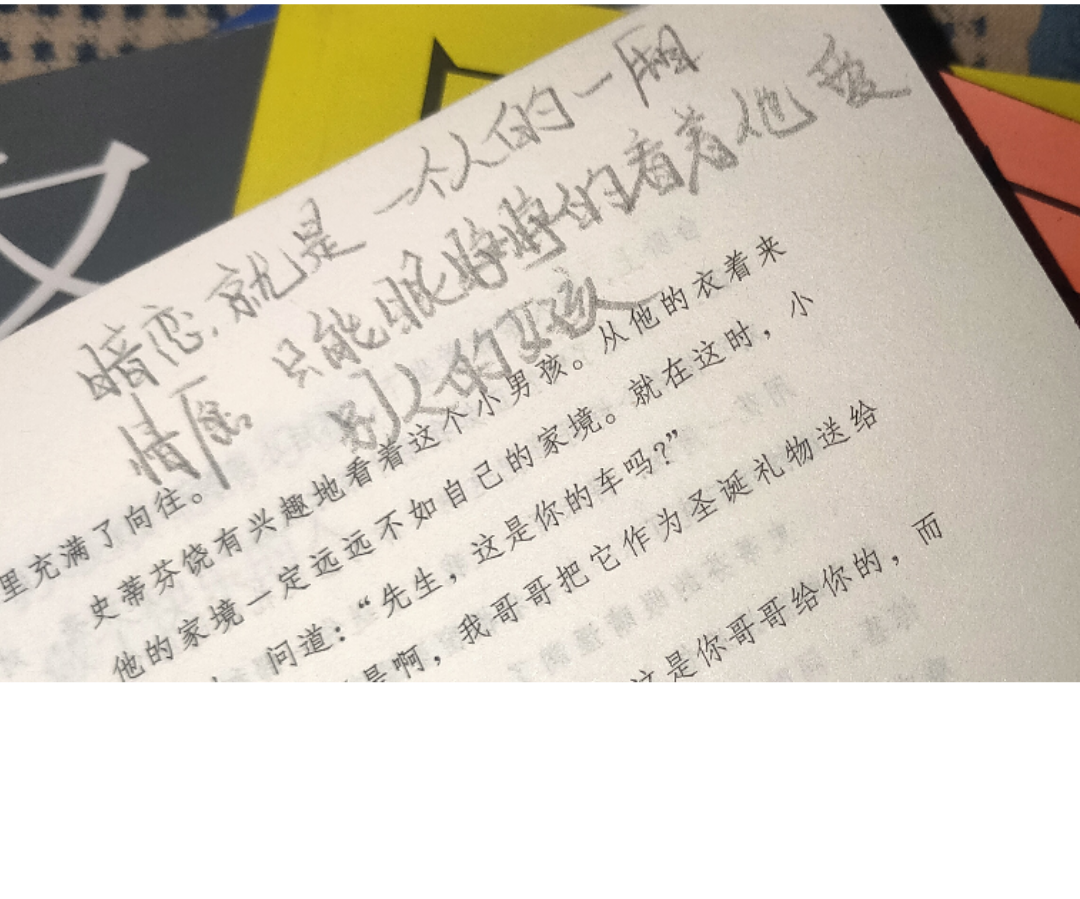 文
暗恋,就是一个人的一厢
情愿 只能眼睁睁的看着他爱
别人的女孩
里充满了向往。
史蒂芬饶有兴趣地看着这个小男孩。从他的衣着来
他的家境一定远远不如自己的家境。就在这时，小
问道：“先生，这是你的车吗？”
是啊，我哥哥把它作为圣诞礼物送给
这是你哥哥给你的，而